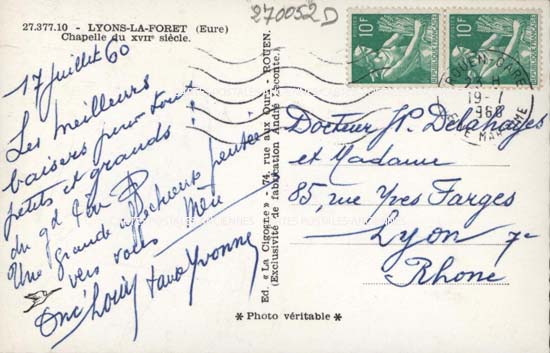 27.377.10 - LYONS-LA-FORET (Eure)
Chapelle du XVIIe siècle.
270052D
17 juillet 60
Les meilleurs
baisers pour tous
petits et grands !
du gd
Une grande affectueuse pensée
vers vous
Onc' Louis tava Yvonne
Ed. « La Cigogne » - 74, rue aux Ours - ROUEN.
(Exclusivité de fabrication André Leconte).
10F
10F
ROUEN-GARE
19-7
1960
SEINE MARITIME
Docteur JP. Delahayes
et Madame
85, rue Yves Farges
Lyon 7e
Rhône
* Photo véritable *